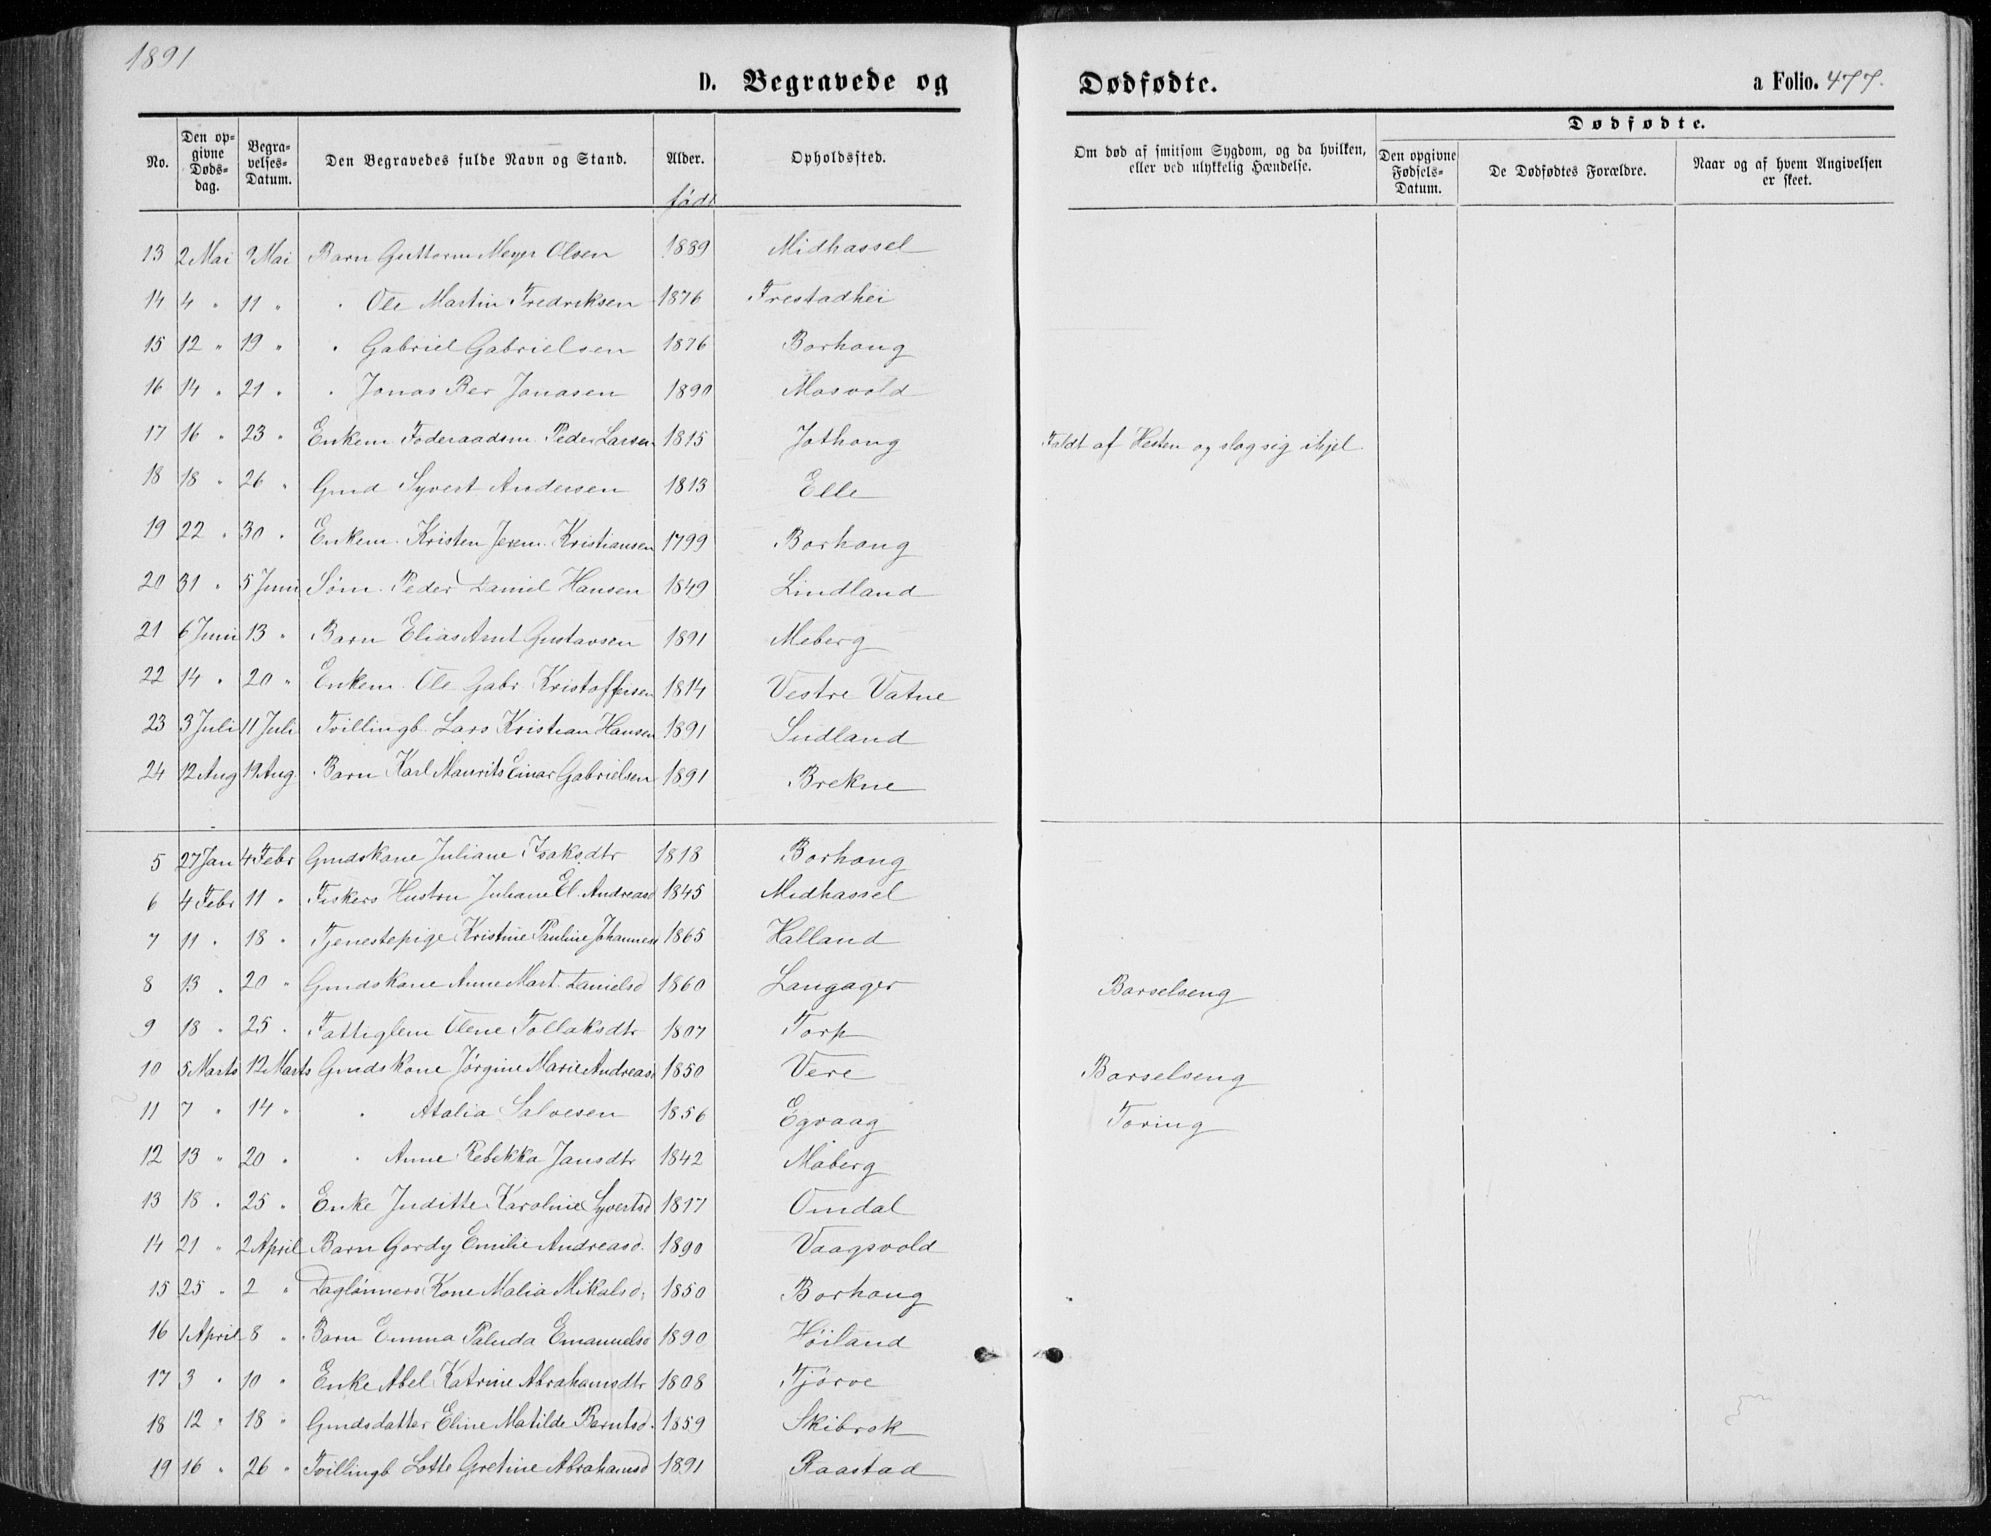 1891
D. Begravede og Dødfødte. a Folio. 477.
No. Den opgivne Dødsdag. Begravelses-Datum. Den Begravedes fulde Navn og Stand. Alder. født Opholdssted. Om død af smitsom Sygdom, og da hvilken, eller ved ulykkelig Hændelse. Dødfødte. Den opgivne Fødsels-Datum. De Dødfødtes Forældre. Naar og af hvem Angivelsen er skeet.
13 2 Mai 9 Mai Barn Guttorm Meyer Olsen 1889 Midhassel
14 4 " 11 " " Ole Martin Fredriksen 1876 Frestadhei
15 12 " 19 " " Gabriel Gabrielsen 1876 Borhaug
16 14 " 21 " " Jonas Ber Jonasen 1890 Mosvold
17 16 " 23 " Enkem. Føderaadsm. Peder Larsen 1815 Jothaug Faldt af Hesten og slog sig ihjel
18 18 " 26 " Gmd Syvert Andersen 1813 Elle
19 22 " 30 " Enkem. Kristen Jerem. Kristiansen 1799 Borhaug
20 31 " 5 Juni Søm. Peder Daniel Hansen 1849 Lindland
21 6 Juni 13 " Barn Elias Arnt Gustavsen 1891 Meberg
22 14 " 20 " Enkem. Ole Gabr. Kristoffersen 1814 Vestre Vatne
23 3 Juli 11 Juli Tvillingb. Lars Kristian Hansen 1891 Sudland
24 12 Aug 19 Aug. Barn Karl Maurits Einar Gabrielsen 1891 Brekne
5 27 Jan 4 Febr Gmdskone Juliane Isaksdtr 1818 Borhaug
6 4 Febr 11 " Fiskers Hustru Juliane El. Andreasd 1845 Midhassel
7 11 " 18 " Tjenestepige Kristine Pauline Johannesd 1865 Halland
8 13 " 20 " Gmdskone Anne Mart. Danielsd 1860 Langager Barselseng
9 18 " 25 " Fattiglem Olene Tollaksdtr 1807 Torp
10 5 Marts 12 Marts Gmdskone Jørgine Marie Andreasd 1850 Vere Barselseng
11 7 " 14 " " Atalia Salvesen 1856 Egvaag Tæring
12 13 " 20 " " Anne Rebekka Jansdtr 1842 Møberg
13 18 " 25 " Enke Juditte Karoline Syvertsd 1817 Omdal
14 21 " 2 April Barn Gordy Emilie Andreasd. 1890 Vaagsvold
15 25 " 2 " Daglønners Kone Malia Mikalsd. 1850 Borhaug
16 1 April 8 " Barn Emma Paluda Emanuelsd 1890 Høiland
17 3 " 10 " Enke Abel Katrine Abrahamsdtr 1808 Tjørve
18 12 " 18 " Gmdsdatter Eline Matilde Berntsd. 1859 Skibrok
19 16 " 26 " Tvillingb Lotte Gretine Abrahamsd 1891 Raastad